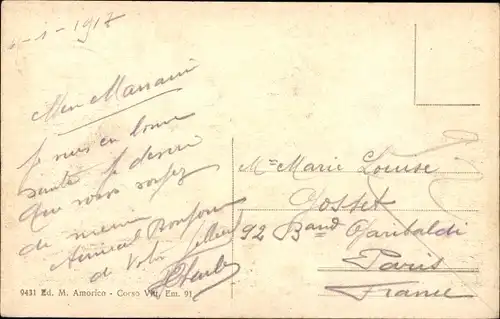 1-1-1917
Je suis en bonne
santé je desire
Que vous soyez
de meme
Amical Bonjour
de Votre
Mme Marie Louise
Gosset
92 Band Garibaldi
Paris
France
9431 Ed. M. Amorico - Corso Vitt. Em. 91